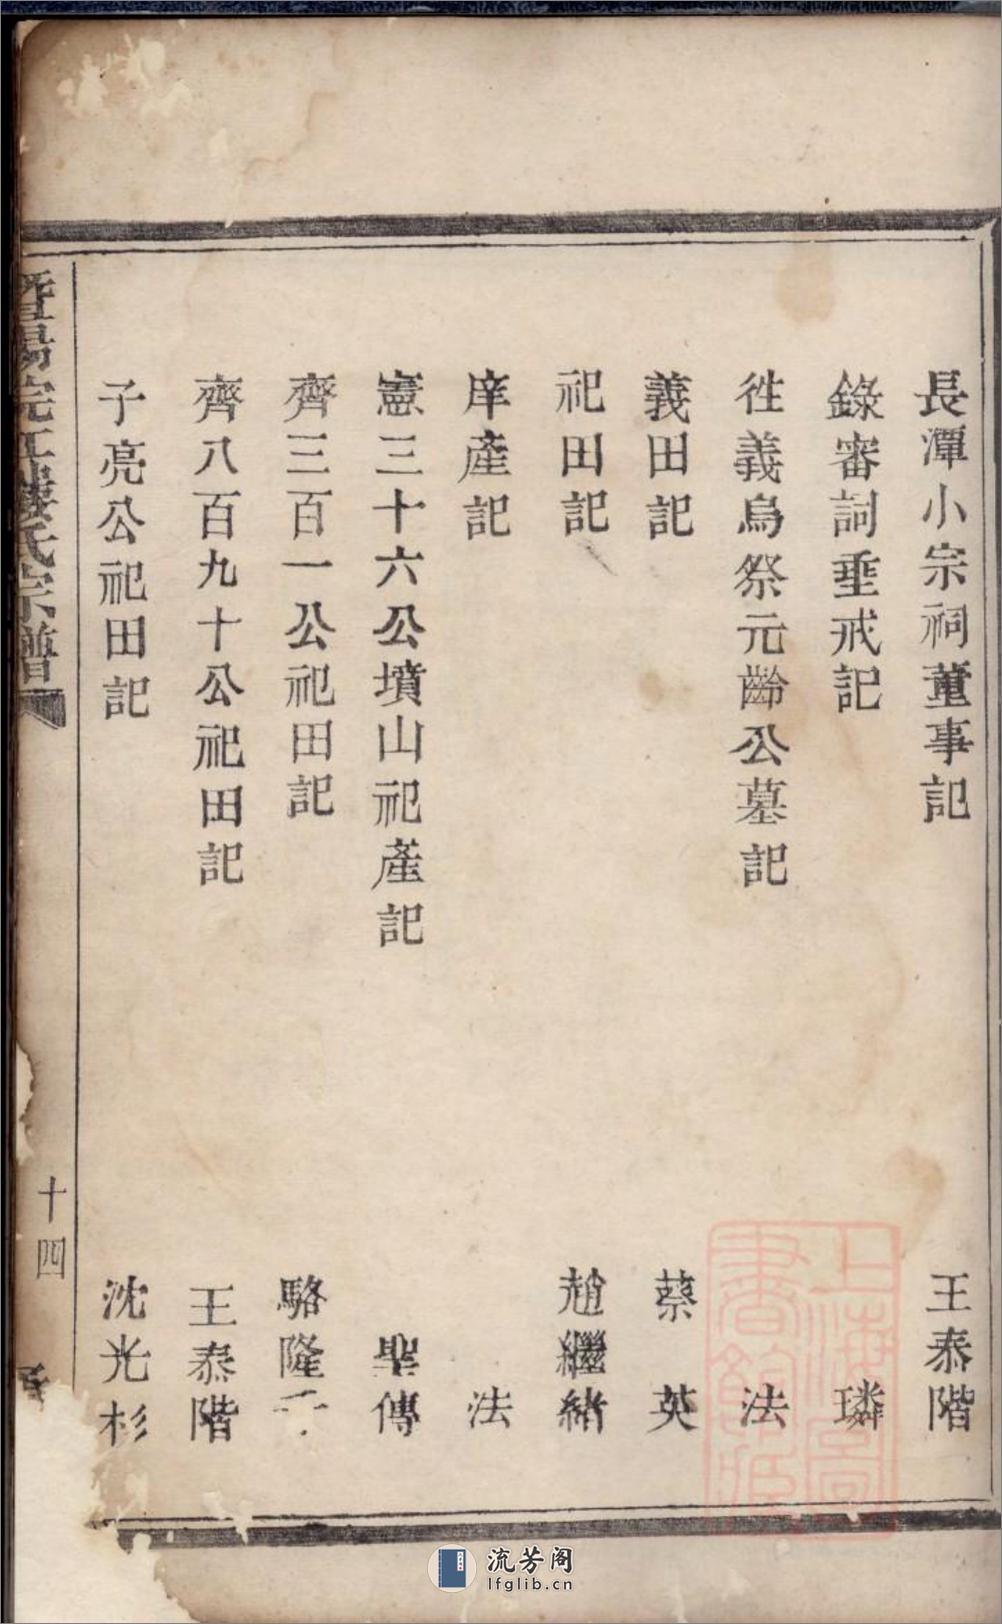 長潭小宗祠董事記 王泰階
錄審詞垂戒記 璘
徃義烏祭元齡公墓記 法
義田記 蔡英
祀田記 趙繼緒
庠產記 法
憲三十六公墳山祀產記 聖傳
齊三百一公祀田記 駱隆
齊八百九十公祀田記 王泰階
子亮公祀田記 沈光杉
暨陽浣江樓氏宗譜
十四
上海圖書館藏
流芳阁
lfglib.cn